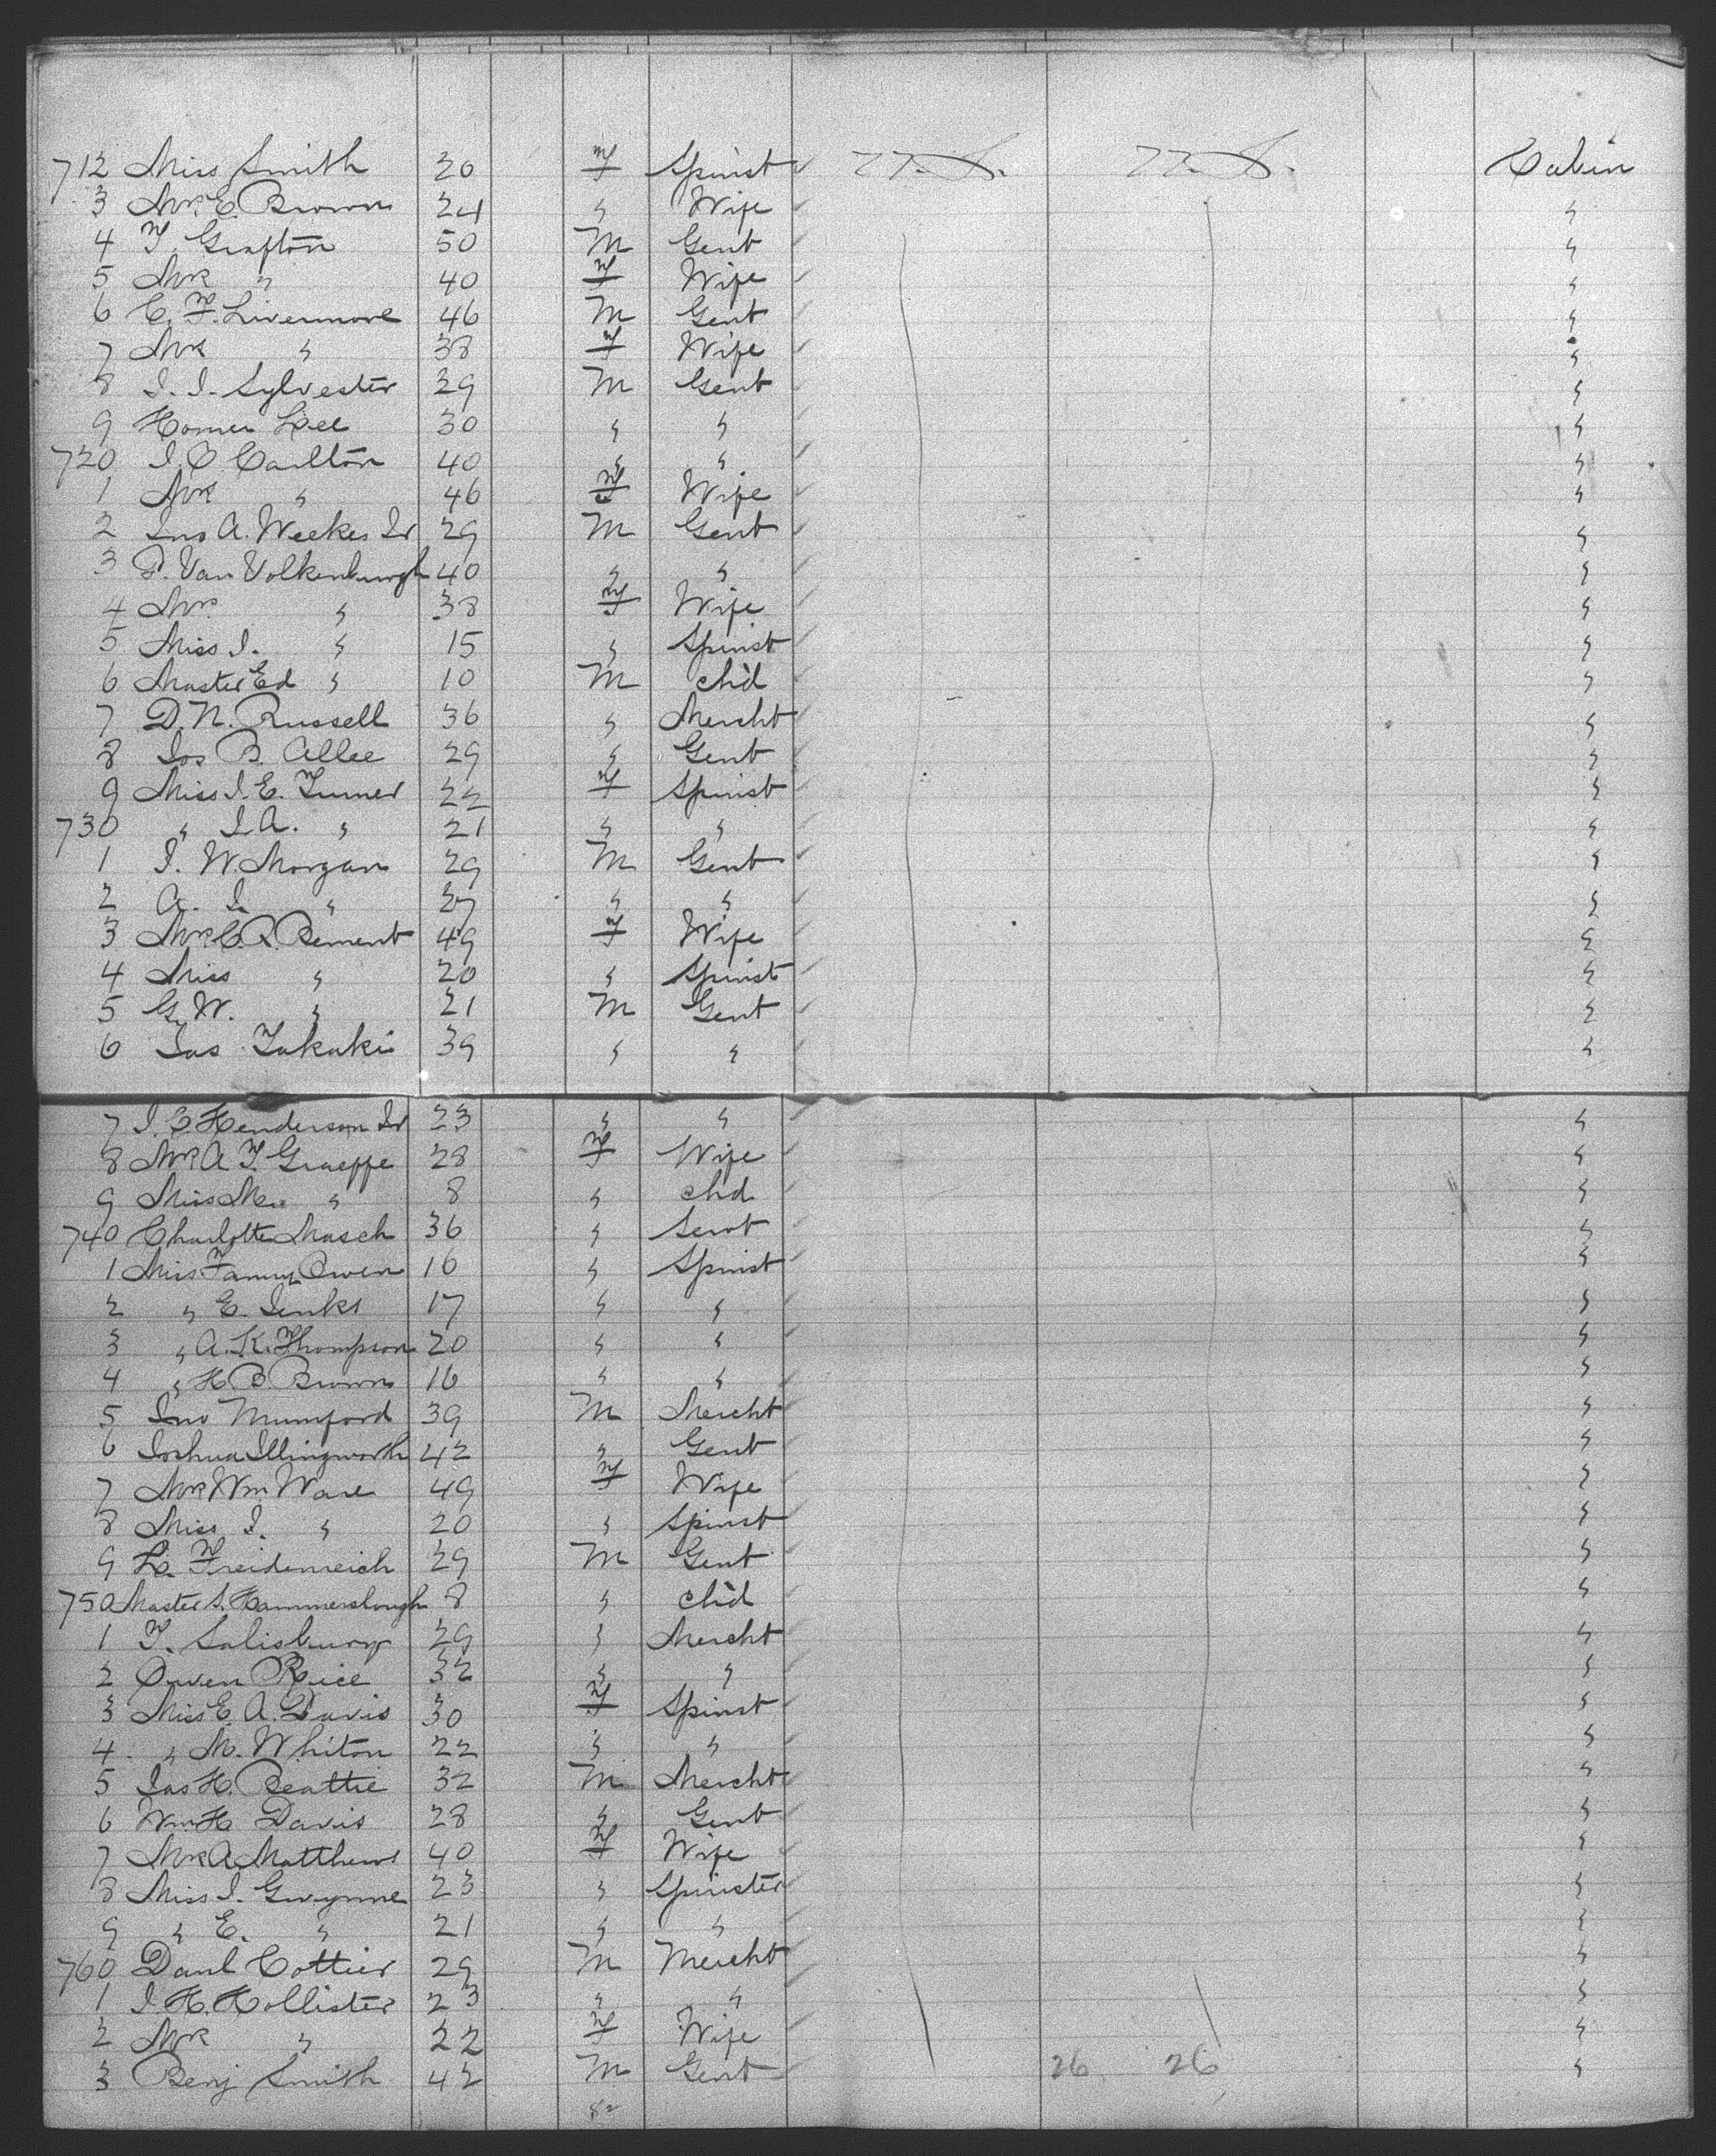 712 Miss Smith 20 f Spinst U.S. U.S. Cabin
3 Mrs E. Brown 24 " Wife "
4 F. Grafton 50 M Gent "
5 Mrs " 40 f Wife "
6 C. F. Livermore 46 M Gent "
7 Mrs " 38 f Wife "
8 I. I. Sylvester 29 M Gent "
9 Homer Lee 30 " " "
720 I. C Carlton 40 " " "
1 Mrs " 46 f Wife "
2 Jno A. Weekes Jr 29 M Gent "
3 P. Van Volkenburgh 40 " " "
4 Mrs " 38 f Wife "
5 Miss I. " 15 " Spinst "
6 Master Ed " 10 M chd "
7 D. N. Russell 36 " Mercht "
8 Jos B. Allee 29 " Gent "
9 Miss I. E. Turner 22 f Spinst "
730 " I. A. " 21 " " "
1 J. W. Morgan 29 M Gent "
2 A. J. " 27 " " "
3 Mrs C. R. Bement 49 f Wife "
4 Miss " 20 " Spinst "
5 G. W. " 21 M Gent "
6 Jas Takaki 39 " " "
7 J. C. Henderson Jr 23 " " "
8 Mrs A. F. Graeffe 28 f Wife "
9 Miss M. " 8 " chd "
740 Charlotte Masch 36 " Servt "
1 Miss Fanny Owen 16 " Spinst "
2 " E. Jenks 17 " " "
3 " A. K. Thompson 20 " " "
4 " H B. Brown 16 " " "
5 Jno Mumford 39 M Mercht "
6 Joshua Illingworth 42 " Gent "
7 Mrs Wm Ware 49 f Wife "
8 Miss I. " 20 " Spinst "
9 L. Freidenreich 29 M Gent "
750 Master S. Hammerslough 8 " chd "
1 F. Salisbury 29 " Mercht "
2 Owen Rice 32 " " "
3 Miss E. A. Davis 30 f Spinst "
4 " M. Whiton 22 " " "
5 Jas H. Beattie 32 M Mercht "
6 Wm H Davis 28 " Gent "
7 Mrs A. Matthews 40 f Wife "
8 Miss J. Gwynne 23 " Spinster "
9 " E. " 21 " " "
760 Danl Cottier 29 M Mercht "
1 J. H. Hollister 23 " " "
2 Mrs " 22 f Wife "
3 Benj Smith 42 M Gent 26 26 "